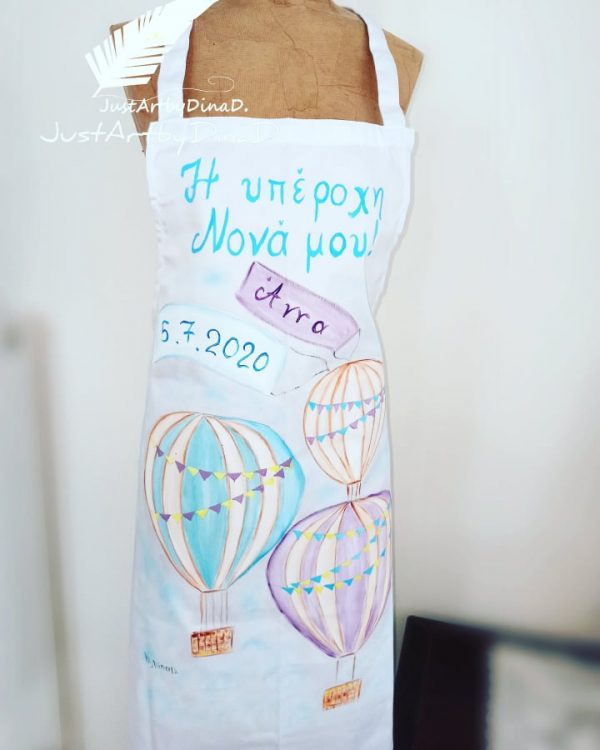 JustArtbyDinaD.
JustArtbyDinaD.
Η υπέροχη
Νονά μου!
Άννα
5.7.2020